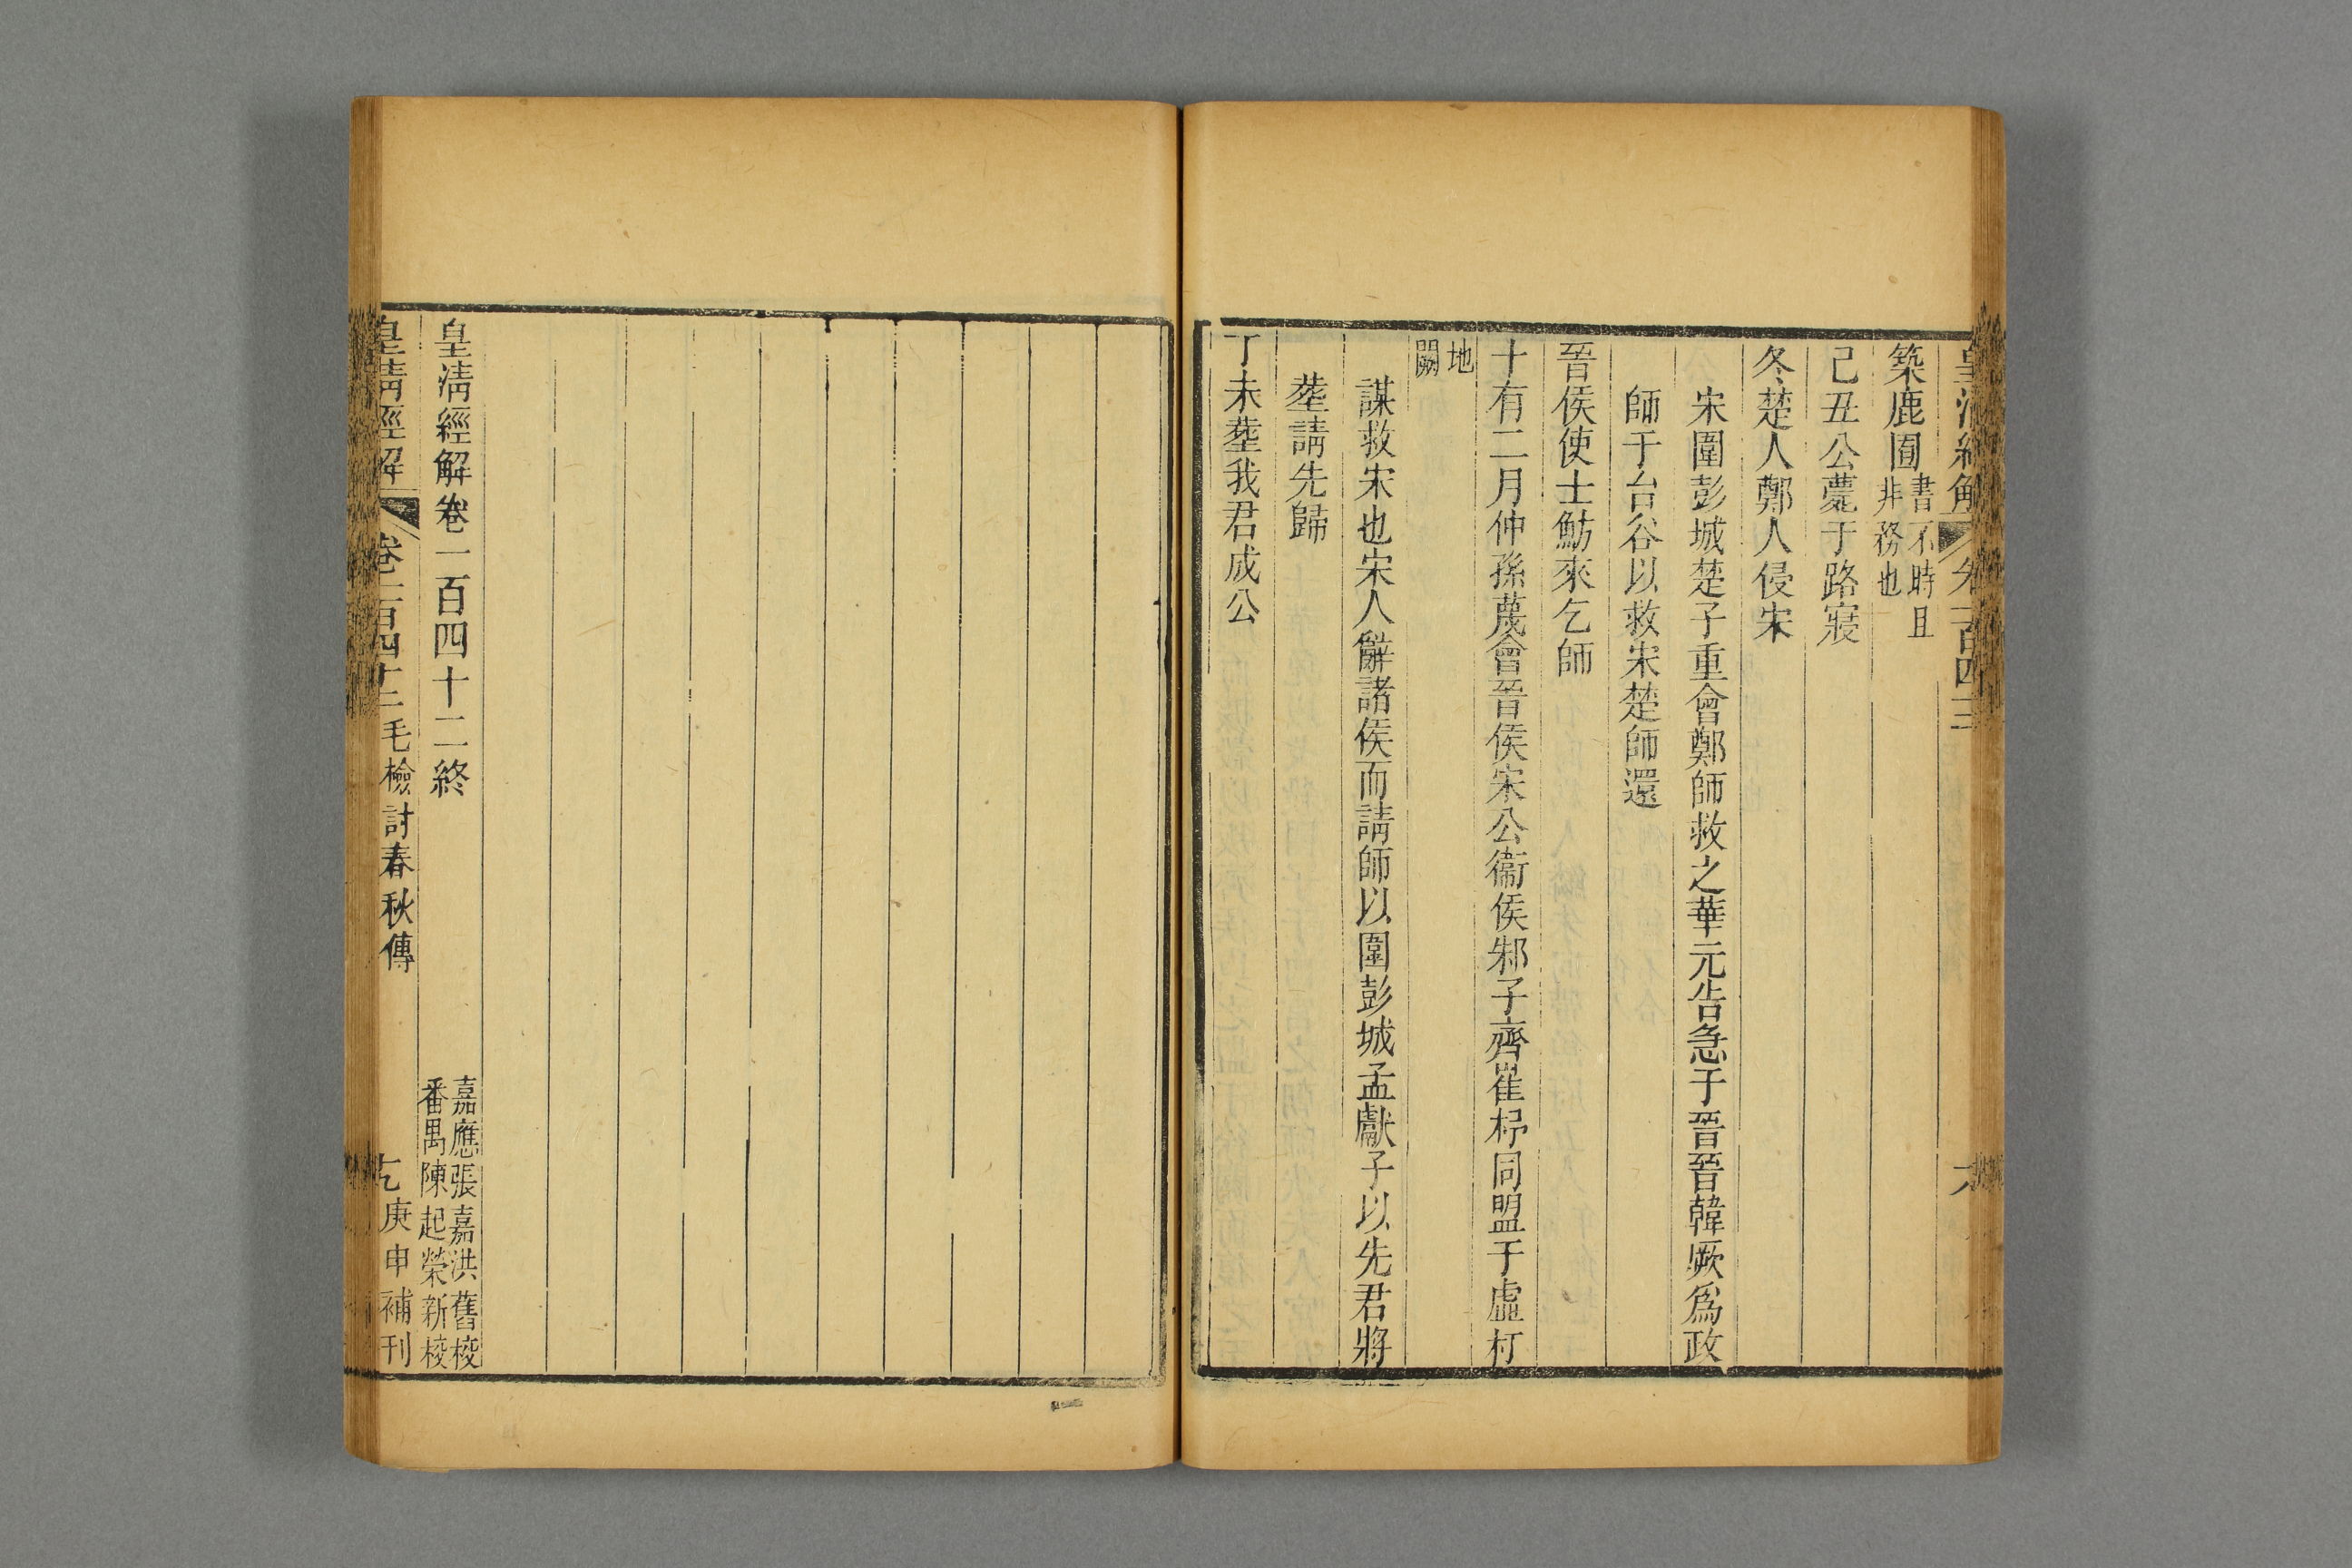 皇清經解
築鹿囿書不時且非務也
己丑公薨于路寢
冬楚人鄭人侵宋
宋圍彭城楚子重會鄭師救之華元告急于晉晉韓厥爲政
師于台谷以救宋楚師還
晉侯使士魴來乞師
十有二月仲孫蔑會晉侯宋公衞侯邾子齊崔杼同盟于虛朾
地闕
謀救宋也宋人辭諸侯而請師以圍彭城孟獻子以先君將
塟請先歸
丁未塟我君成公
皇清經解卷一百四十二終
嘉應張嘉洪舊校
番禺陳起榮新校
皇清經解 卷一百四十二 毛檢討春秋傳 庚申補刊